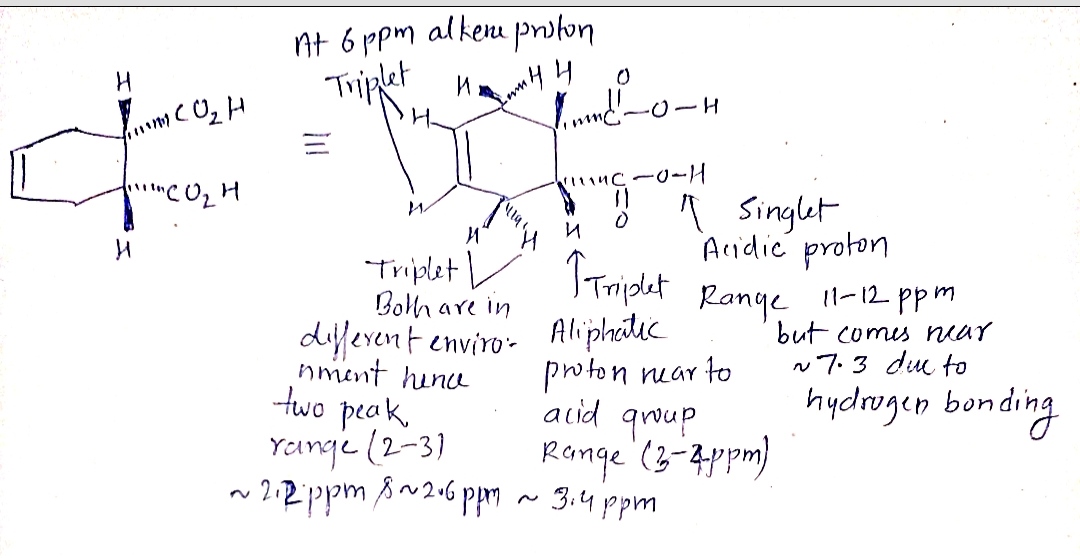 At 6 ppm alkene proton
Triplet
H
CO2H
CO2H
H
≡
H
H
H
H
H
H
H
H
O
C-O-H
C-O-H
O
Singlet
Acidic proton
Range 11-12 ppm
but comes near
~7.3 due to
hydrogen bonding
Triplet
Both are in
different enviro-
nment hence
two peak
range (2-3)
~2.2 ppm & ~2.6 ppm
Triplet
Aliphatic
proton near to
acid group
Range (3-4ppm)
~ 3.4 ppm